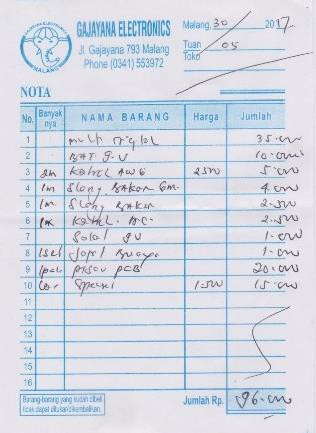 GAJAYANA ELECTRONICS
Jl. Gajayana 793 Malang
Phone (0341) 553972
GAJAYANA ELECTRONICS
MALANG
Malang, 30 2017
Tuan 05
Toko
NOTA
No. Banyak nya NAMA BARANG Harga Jumlah
1 35.000
2 BAT 9V 10.000
3 2m Kabel AWG 2500 5.000
4 1m Slang BAKAR 6m. 4.000
5 1m Slang BAKAR 2.500
6 1m Kabel AC 2.500
7 9V 1.000
8 1set Buaya 1.000
9 PCB 20.000
10 Spacer 1.500 15.000
11
12
13
14
15
16
Barang-barang yang sudah dibeli
tidak dapat ditukar/dikembalikan.
Jumlah Rp. 96.000